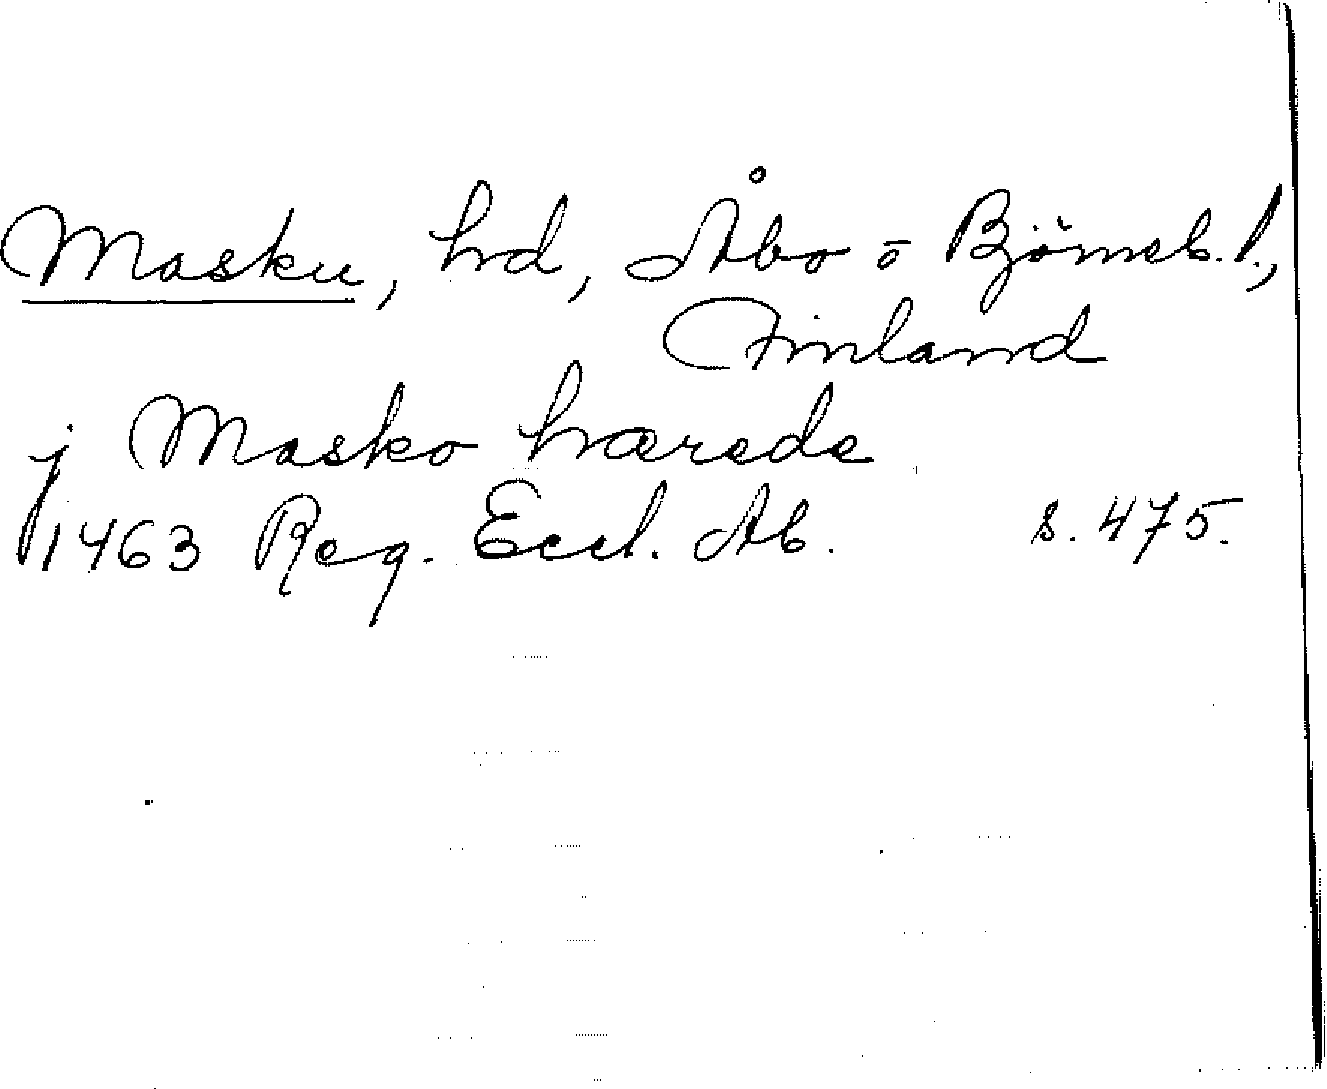 Masku, hd, Åbo o Björneb. l.,
Finland
j Masko hærede
1463 Reg. Eccl. Ab. s. 475.